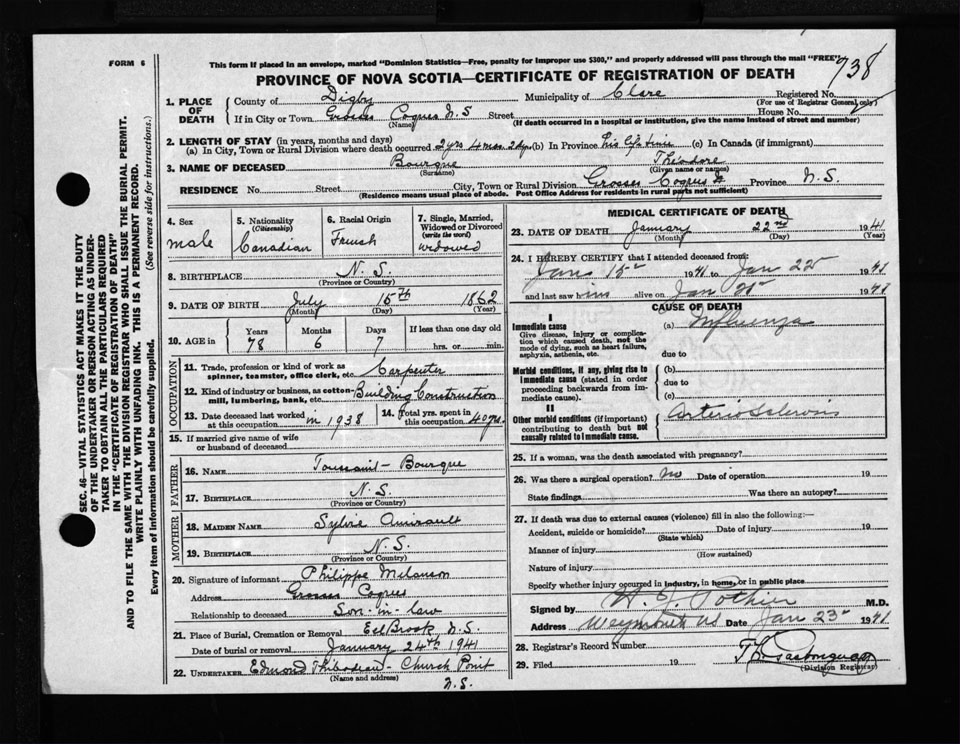 FORM 6
This form if placed in an envelope, marked "Dominion Statistics—Free, penalty for improper use $300," and properly addressed will pass through the mail "FREE"
738
PROVINCE OF NOVA SCOTIA—CERTIFICATE OF REGISTRATION OF DEATH
1. PLACE OF DEATH
County of Digby Municipality of Clare Registered No.
(For use of Registrar General only)
If in City or Town Grosses Coques N.S Street House No.
(Name) (If death occurred in a hospital or institution, give the name instead of street and number)
2. LENGTH OF STAY (in years, months and days)
(a) In City, Town or Rural Division where death occurred 2 yrs 4 mos 2 dys (b) In Province his life time (c) In Canada (if immigrant)
3. NAME OF DECEASED Bourque Théodore
(Surname) (Given name or names)
RESIDENCE No. Street City, Town or Rural Division Grosses Coques Province N.S.
(Residence means usual place of abode. Post Office Address for residents in rural parts not sufficient)
4. Sex
male
5. Nationality
(Citizenship)
Canadian
6. Racial Origin
French
7. Single, Married, Widowed or Divorced
(write the word)
widowed
8. BIRTHPLACE N.S.
(Province or Country)
9. DATE OF BIRTH July 15th 1862
(Month) (Day) (Year)
10. AGE in
Years Months Days If less than one day old
78 6 7 hrs. or min.
OCCUPATION
11. Trade, profession or kind of work as spinner, teamster, office clerk, etc. Carpenter
12. Kind of industry or business, as cotton-mill, lumbering, bank, etc. Building Construction
13. Date deceased last worked at this occupation in 1938
14. Total yrs. spent in this occupation 40 yrs.
15. If married give name of wife or husband of deceased
FATHER
16. NAME Toussaint Bourque
17. BIRTHPLACE N.S.
(Province or Country)
MOTHER
18. MAIDEN NAME Sylvie Amirault
19. BIRTHPLACE N.S.
(Province or Country)
20. Signature of informant Philippe Melanson
Address Grosses Coques
Relationship to deceased Son-in-law
21. Place of Burial, Cremation or Removal Eel Brook N.S.
Date of burial or removal January 24th 1941
22. UNDERTAKER Edmond Thibodeau - Church Point
(Name and address)
N.S.
MEDICAL CERTIFICATE OF DEATH
23. DATE OF DEATH January 22nd 1941
(Month) (Day) (Year)
24. I HEREBY CERTIFY that I attended deceased from
Jan 15 1941 to Jan 22 1941
and last saw him alive on Jan 21 1941
CAUSE OF DEATH
I
Immediate cause
Give disease, injury or complication which caused death, not the mode of dying, such as heart failure, asphyxia, asthenia, etc.
(a) Influenza
due to
Morbid conditions, if any, giving rise to immediate cause (stated in order proceeding backwards from immediate cause).
(b)
due to
(c)
II
Other morbid conditions (if important) contributing to death but not causally related to immediate cause.
Arterio Sclerosis
25. If a woman, was the death associated with pregnancy?
26. Was there a surgical operation? No Date of operation 19
State findings Was there an autopsy?
27. If death was due to external causes (violence) fill in also the following:—
Accident, suicide or homicide? Date of injury 19
(State which)
Manner of injury
(How sustained)
Nature of injury
Specify whether injury occurred in industry, in home, or in public place
Signed by H. J. Pothier M.D.
Address Weymouth NS Date Jan 23 1941
28. Registrar's Record Number
29. Filed 19
(Division Registrar)
SEC. 46—VITAL STATISTICS ACT MAKES IT THE DUTY
OF THE UNDERTAKER OR PERSON ACTING AS UNDER-
TAKER TO OBTAIN ALL THE PARTICULARS REQUIRED
IN THE "CERTIFICATE OF REGISTRATION OF DEATH"
AND TO FILE THE SAME WITH THE DIVISION REGISTRAR WHO SHALL ISSUE THE BURIAL PERMIT.
WRITE PLAINLY WITH UNFADING INK. THIS IS A PERMANENT RECORD.
Every item of information should be carefully supplied. (See reverse side for instructions.)